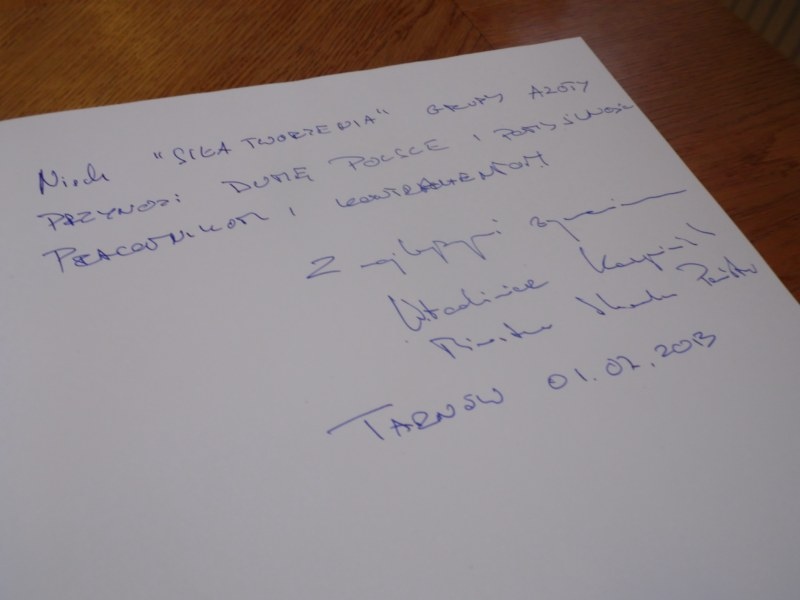 Niech "SIŁA TWORZENIA" GRUPY AZOTY
PRZYNOSI DUMĘ POLSCE I POMYŚLNOŚĆ
PRACOWNIKOM I KONTRAHENTOM
Z najlepszymi życzeniami
Włodzimierz Karpiński
Minister Skarbu Państwa
TARNÓW 01.07.2013